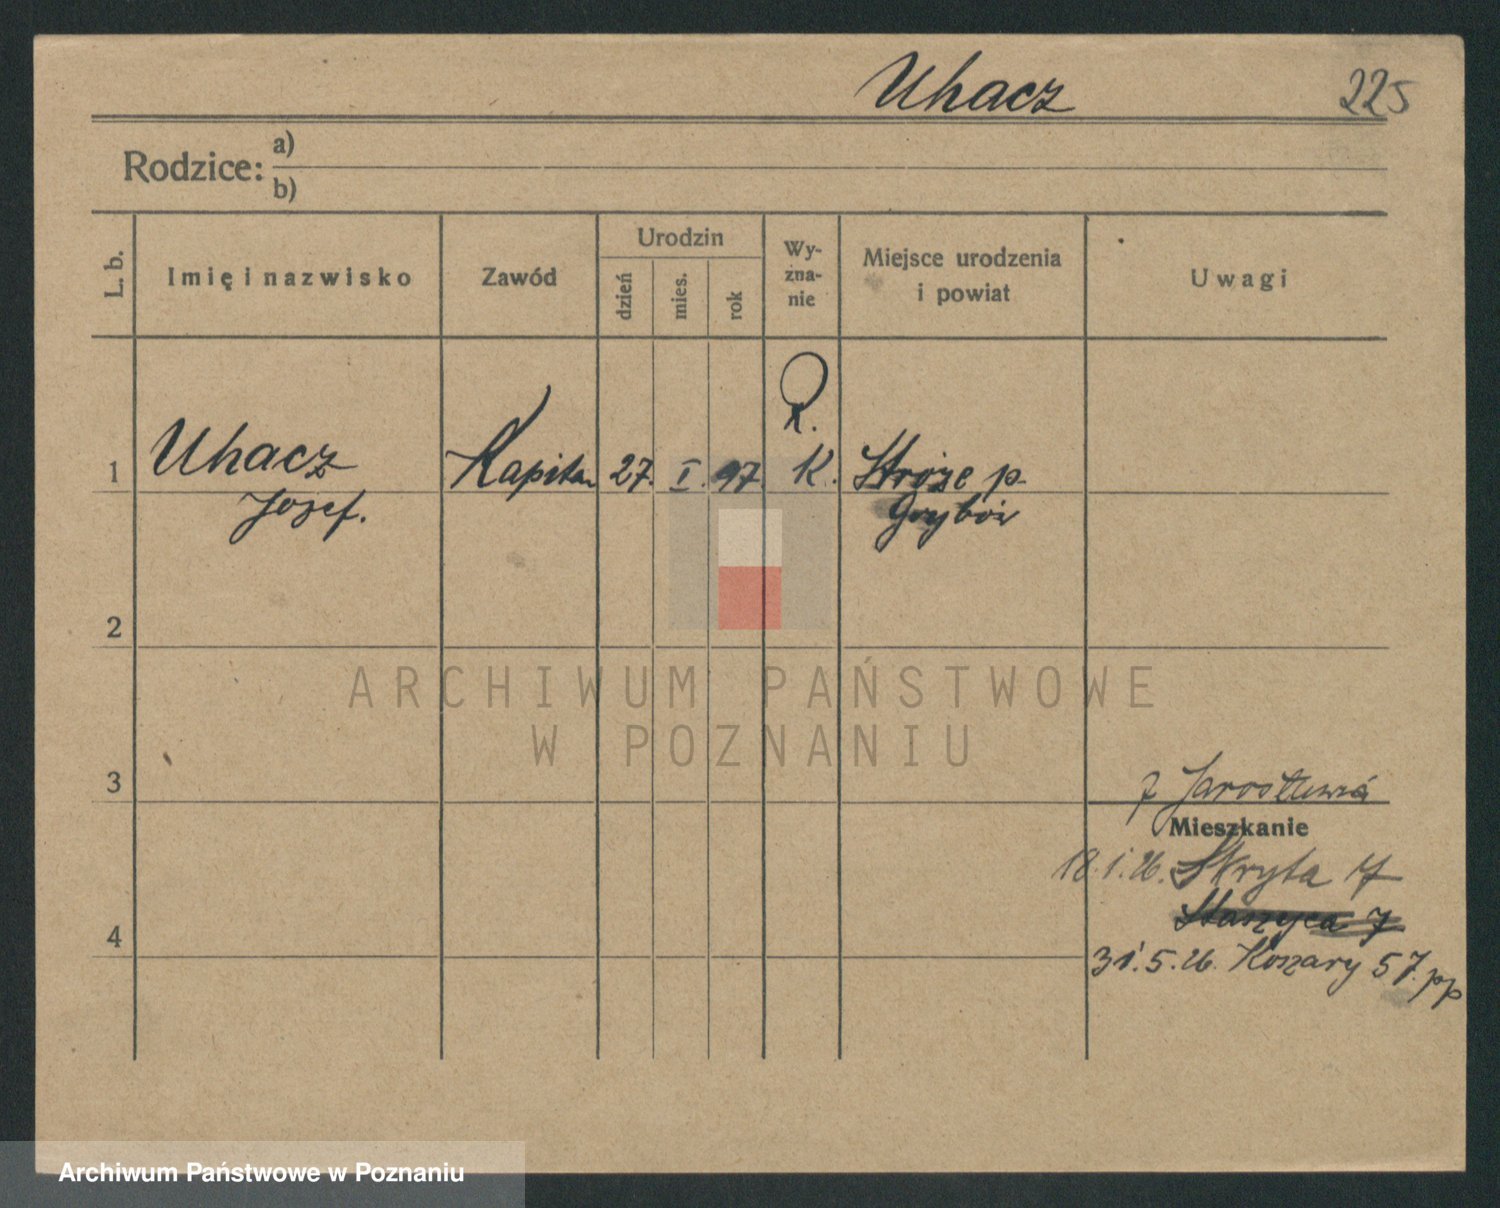 Uhacz 225
Rodzice: a)
b)
L. b. Imię i nazwisko Zawód Urodzin dzień mies. rok Wyzna-nie Miejsce urodzenia i powiat Uwagi
R.
1 Uhacz Kapitan 27. I. 97 K. Stróże p.
Józef. Grybów
2
ARCHIWUM PAŃSTWOWE
W POZNANIU
3
z Jarosławia
Mieszkanie
18.1.26. Skryta 17
4 Staszyca 7
31.5.26. Koszary 57. pp
Archiwum Państwowe w Poznaniu